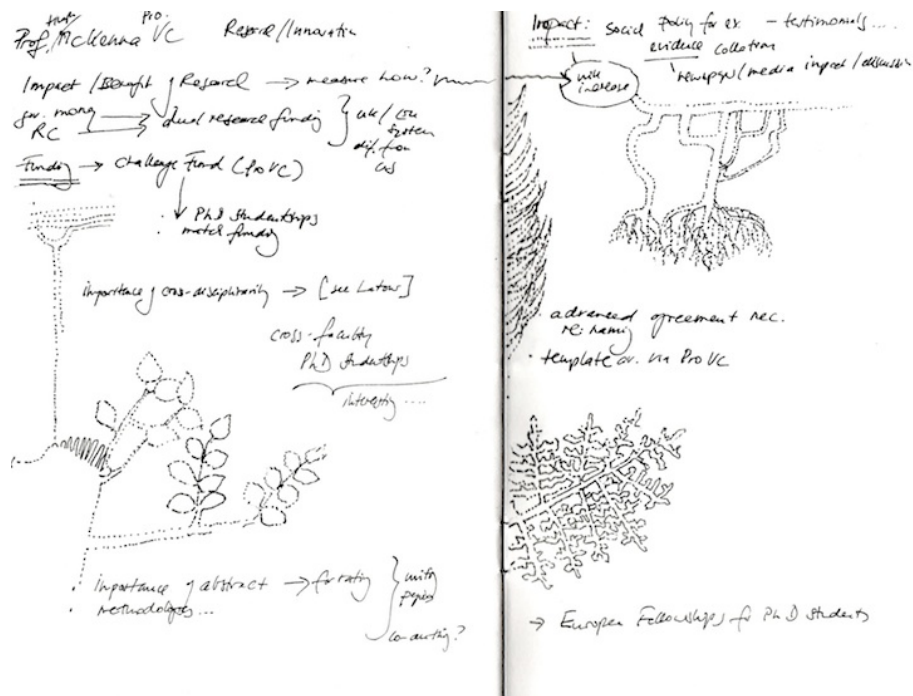 Prof. McKenna Pro VC Research/Innovation
Impact/Benefit of Research → measure how?
gov. money
RC → dual research funding
UK/
system
dif. from
US
Funding → Challenge Fund (ProVC)
· PhD Studentships
· match funding
importance of cross-disciplinarity → [see Latour]
cross-faculty
PhD Studentships
interesting ....
· importance of abstract → for rating
· methodologies ...
writing
papers
co-authoring?
Impact: social policy for ex. – testimonials ....
evidence collation
newspaper/media impact/discussion
will increase
· advanced agreement nec.
re: naming
· template av. via ProVC
→ European Fellowships for PhD students